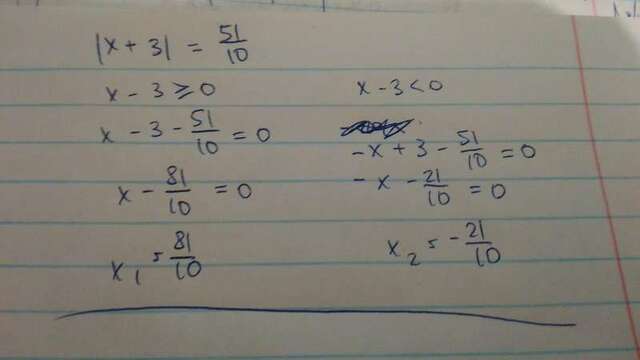 |x + 3| = 51/10
x - 3 ≥ 0
x - 3 - 51/10 = 0
x - 81/10 = 0
x₁ = 81/10
x - 3 < 0
-x + 3 - 51/10 = 0
-x - 21/10 = 0
x₂ = -21/10